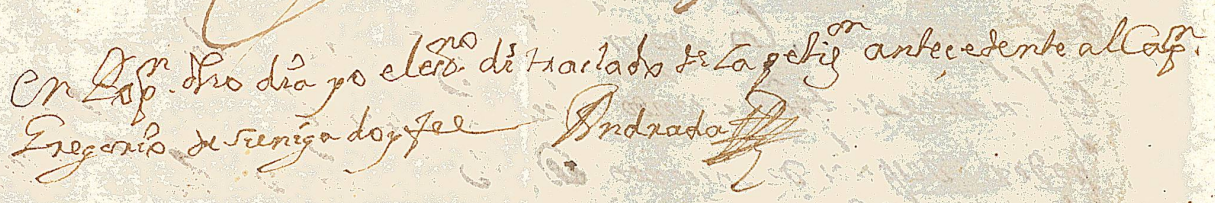 En Lop.n dho dia yo el esno. di traslado de la petiz.on anteçedente al Capn.
Gregorio de sueniga doy fee Andrada